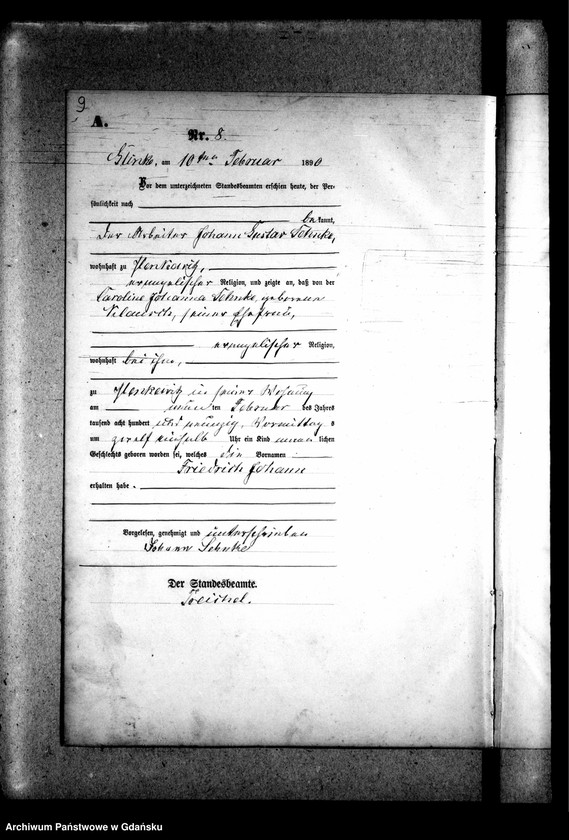 9
A.
Nr. 8.
am 10ten Februar 1890
Vor dem unterzeichneten Standesbeamten erschien heute, der Per-
sönlichkeit nach
be kannt,
der Arbeiter Johann Gustav
wohnhaft zu
evangelischer Religion, und zeigte an, daß von der
Caroline Johanna geborene
seiner Ehefrau,
evangelischer Religion,
wohnhaft bei ihm,
zu in seiner Wohnung
am neunten Februar des Jahres
tausend acht hundert und neunzig, Vormittags
um zwölf einhalb Uhr ein Kind männlichen
Geschlechts geboren worden sei, welches die Vornamen
Friedrich Johann
erhalten habe.
Vorgelesen, genehmigt und unterschrieben
Johann
Der Standesbeamte.
Archiwum Państwowe w Gdańsku